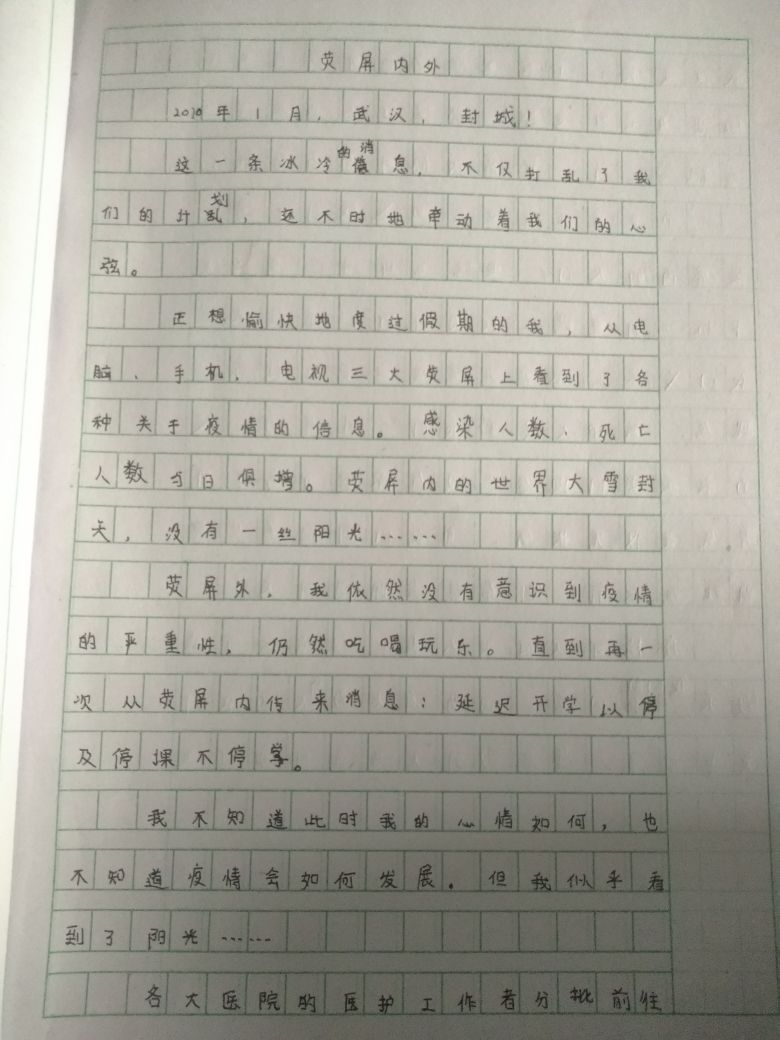 荧屏内外
2020年1月，武汉，封城！
这一条冰冷的消息，不仅打乱了我
们的计划，还不时地牵动着我们的心
弦。
正想愉快地度过假期的我，从电
脑、手机、电视三大荧屏上看到了各
种关于疫情的信息。感染人数、死亡
人数与日俱增。荧屏内的世界大雪封
天，没有一丝阳光……
荧屏外，我依然没有意识到疫情
的严重性，仍然吃喝玩乐。直到再一
次从荧屏内传来消息：延迟开学以停
及停课不停学。
我不知道此时我的心情如何，也
不知道疫情会如何发展。但我似乎看
到了阳光……
各大医院的医护工作者分批前往